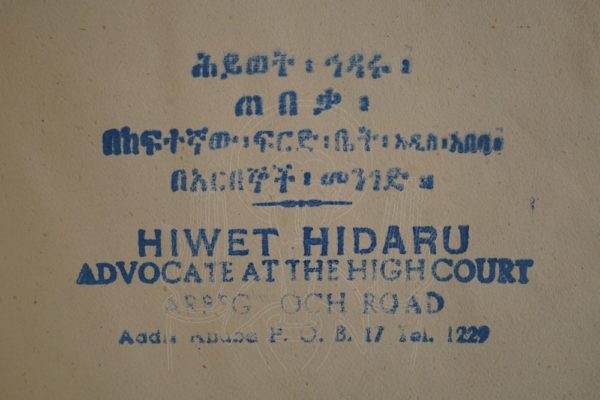 ሕይወት ፡ ኅዳሩ ፡
ጠበቃ ፡
በከፍተኛው ፡ ፍርድ ፡ ቤት ፡ አዲስ ፡ አበባ ።
በአርበኞች ፡ መንገድ ።
HIWET HIDARU
ADVOCATE AT THE HIGH COURT
ROAD
P. O. B. 17 Tel. 1229